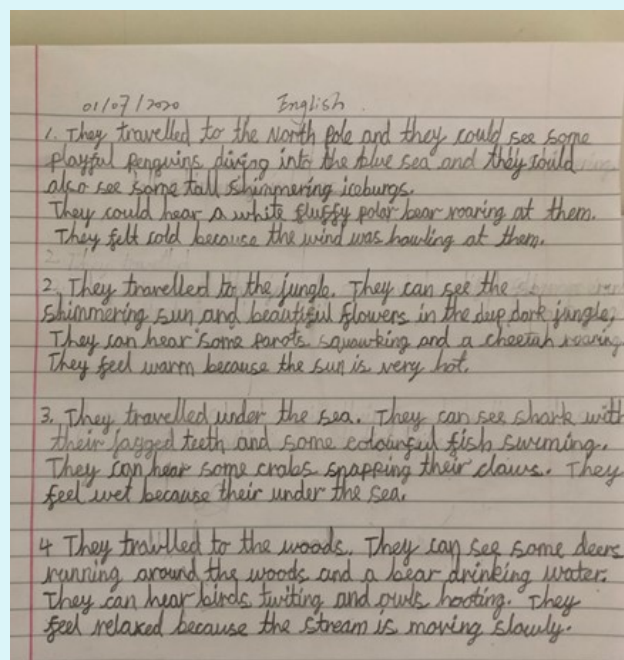 01/07/2020 English.
1. They travelled to the North Pole and they could see some
playful penguins diving into the blue sea and they could
also see some tall shimmering iceburgs.
They could hear a white fluffy polar bear roaring at them.
They felt cold because the wind was howling at them.
2. They travelled to the jungle. They can see the
shimmering sun and beautiful flowers in the deep dark jungle,
They can hear some parots squawking and a cheetah roaring
They feel warm because the sun is very hot.
3. They travelled under the sea. They can see shark with
their jagged teeth and some colourful fish swiming.
They can hear some crabs snapping their claws. They
feel wet because their under the sea.
4 They travlled to the woods. They can see some deers
running around the woods and a bear drinking water.
They can hear birds twiting and owls hooting. They
feel relaxed because the stream is moving slowly.